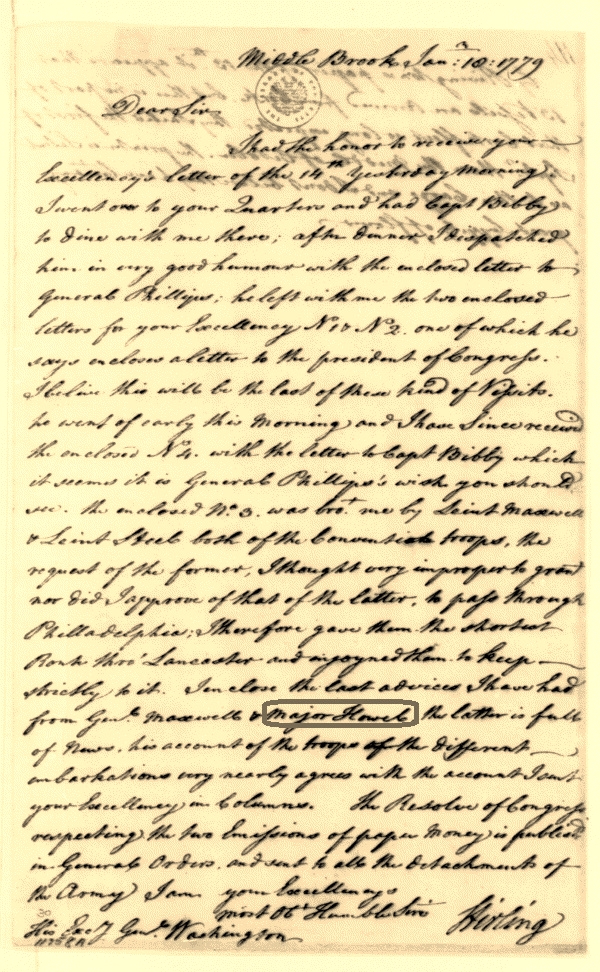 Middle Brook Jan: 18: 1779
Dear Sir
I had the honor to receive your
Excellency's letter of the 14th Yesterday Morning.
I went over to your Quarters and had Capt Bibby
to dine with me there; after dinner I dispatched
him in very good humour with the enclosed letter to
General Phillips; he left with me the two enclosed
letters for your Excellency No 1 & No 2. one of which he
says encloses a letter to the president of Congress.
I belive this will be the last of these kind of Vissits.
he went of early this Morning and I have Since received
the enclosed No 4. with the letter to Capt Bibby which
it seems it is General Phillips's wish you should
see. the enclosed No. 3. was brot. me by Leint Maxwell
& Leint Steel both of the Convention troops, the
request of the former, I thought very improper to grant
nor did I approve of that of the latter, to pass through
Philladelphia; I therefore gave them the shortest
Rout thro' Lancaster and injoyned them to keep
strictly to it. I enclose the last advices I have had
from Genl. Maxwell & Major Howel, the latter is full
of News, his account of the troops of the different
embarkations very nearly agrees with the account I sent
your Excellency in Columns. The Resolve of Congress
respecting the two Emissions of paper Money is publised
in General Orders. and sent to all the detachments of
the Army I am your Excellencys
most Obt Humble Sirt
Stirling
His Excy Genl. Washington